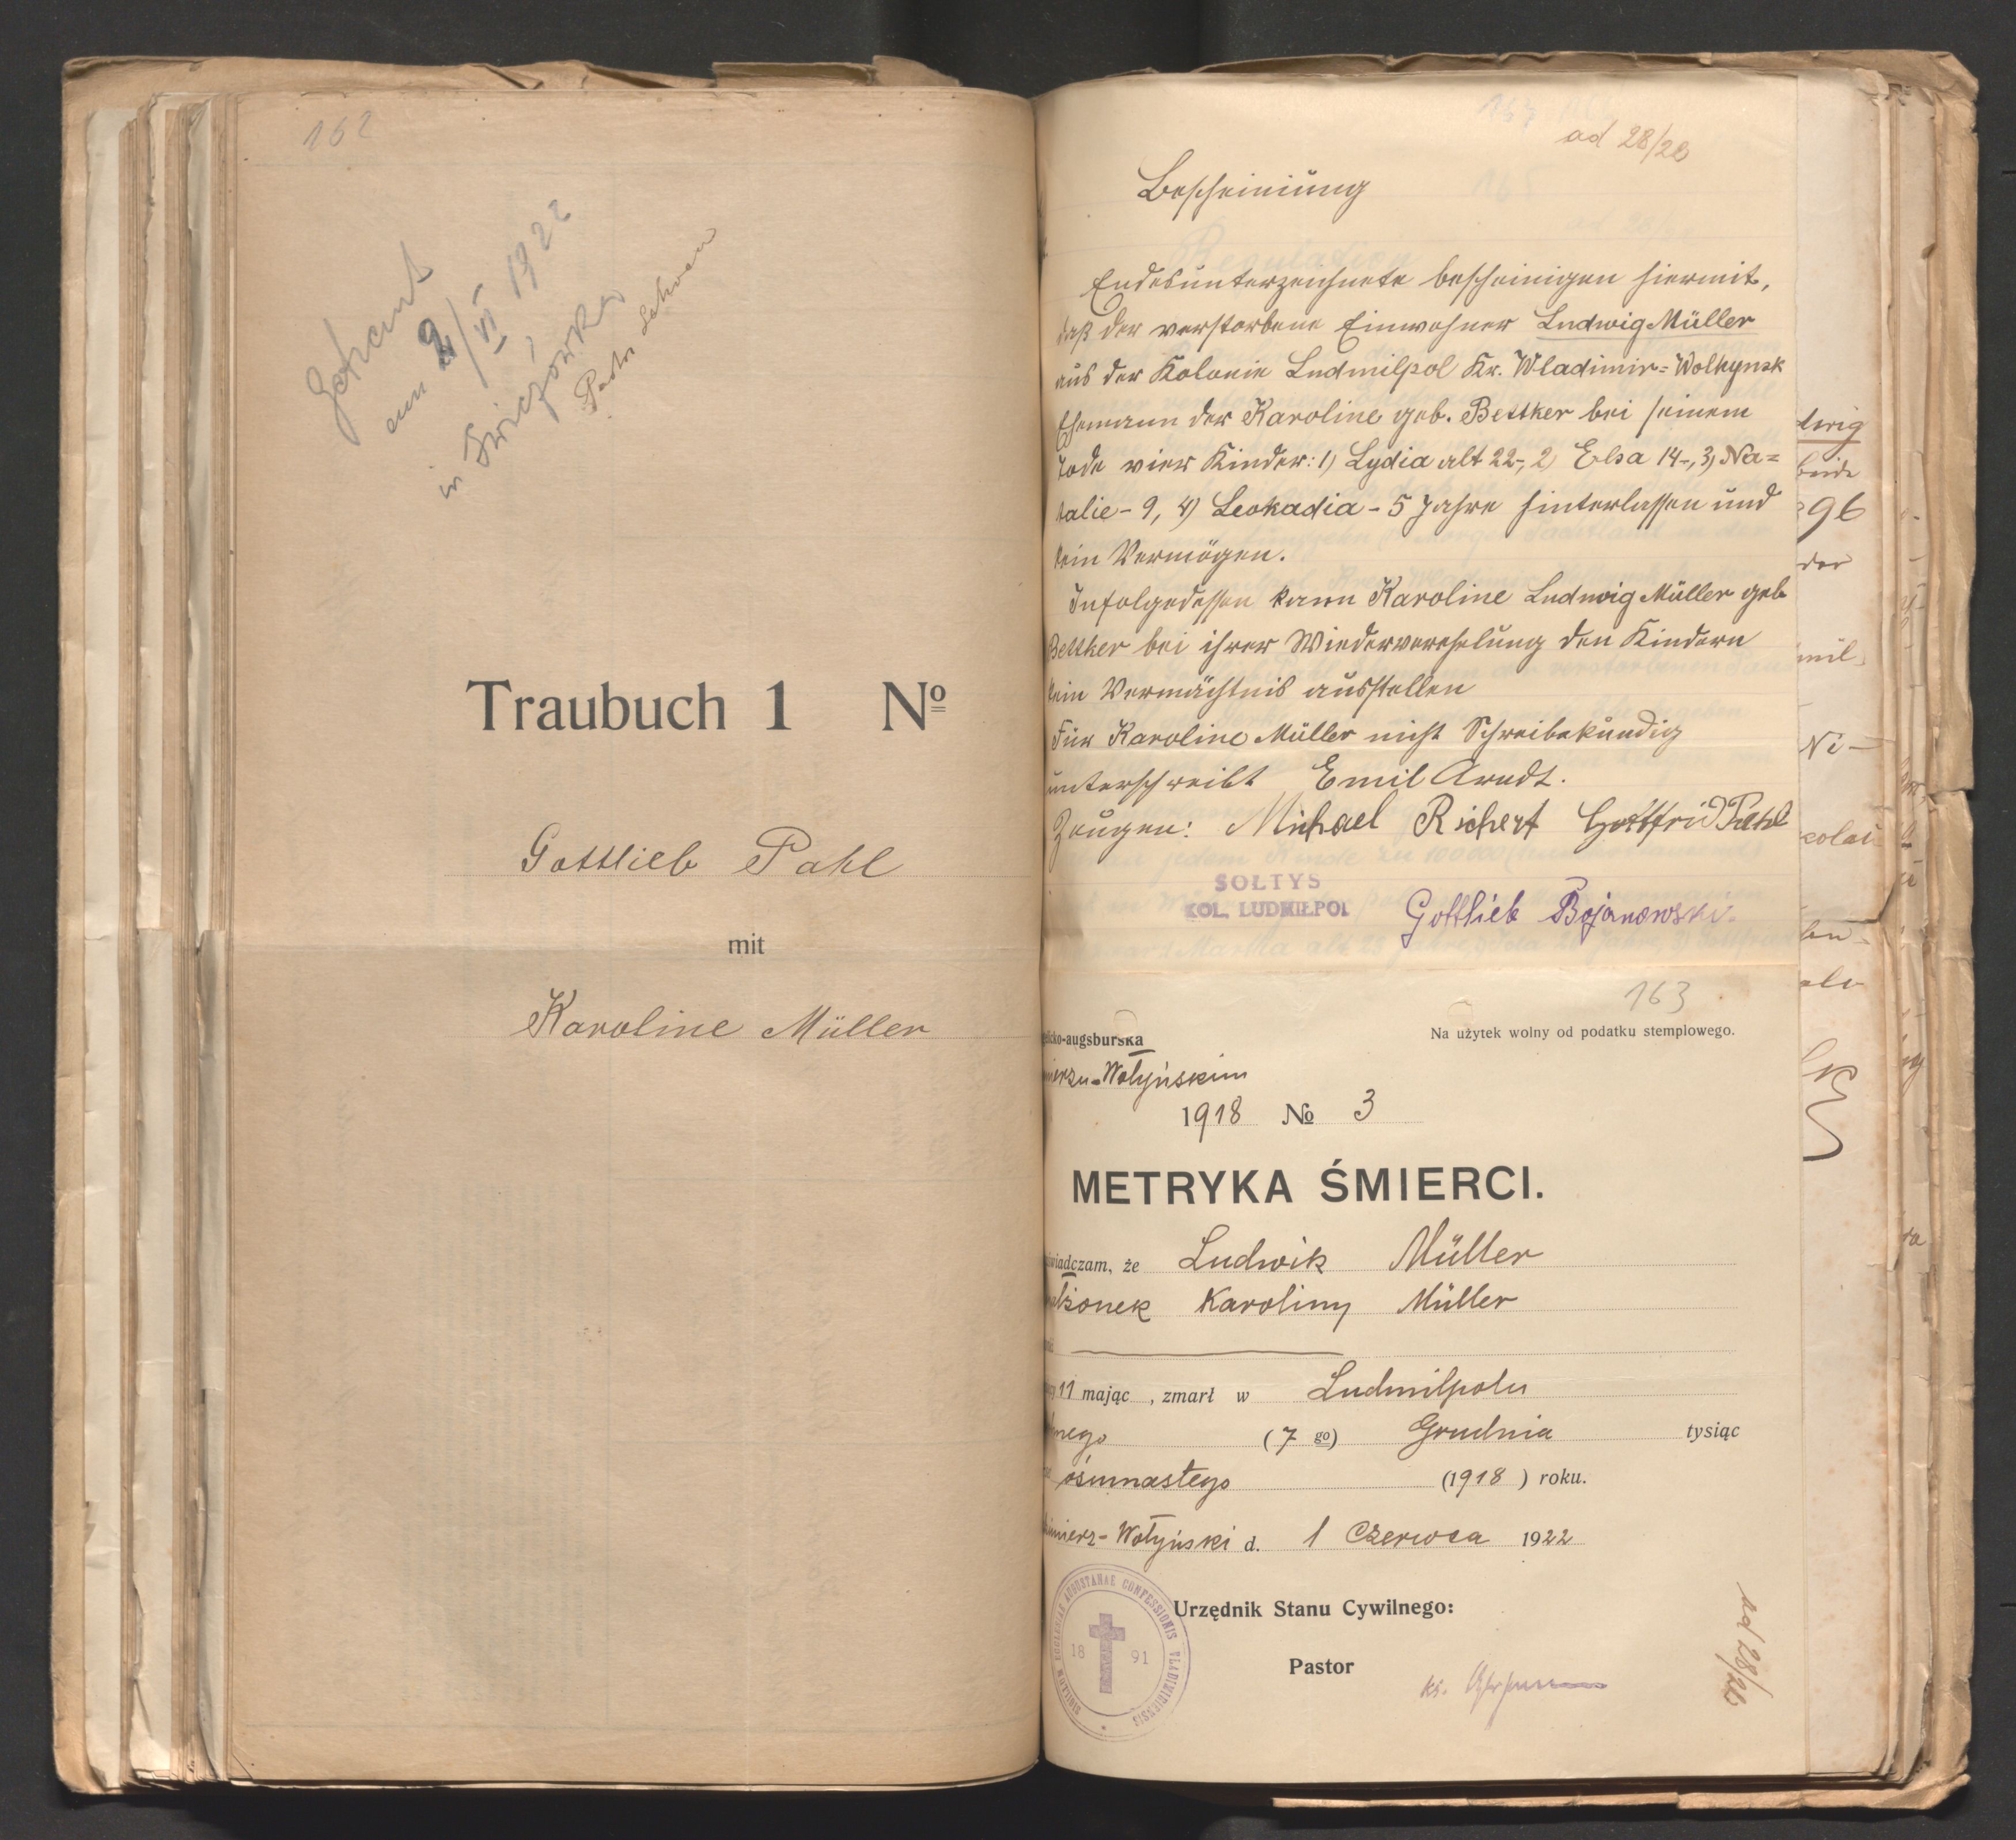 162
Getraut
am 2/VI 1922
in Swiczówka
Pastor Schoen
Traubuch 1 No
Gottlieb Pahl
mit
Karoline Müller
ad 28/28
Bescheiniung
Endesunterzeichnete bescheinigen hiermit,
daß der verstorbene Einwohner Ludwig Müller
aus der Kolonie Ludmilpol Kr. Wladimir-Wolhynsk
Ehemann der Karoline geb. Bettker bei seinem
Tode vier Kinder: 1) Lydia alt 22-, 2) Elsa 14-, 3) Na=
talie - 9, 4) Leokadia - 5 Jahre hinterlassen und
kein Vermögen.
Infolgedessen kann Karoline Ludwig Müller geb
Bettker bei ihrer Wiederverehelung den Kindern
kein Vermächtnis ausstellen
Für Karoline Müller nicht Schreibekundig
unterschreibt Emil Arndt.
Zeugen: Michael Richert Gottfrid Pahl
SOŁTYS
KOL. LUDMIŁPOL
Gottlieb Bojanowski.
163
licko-augsburska
Na użytek wolny od podatku stemplowego.
ierzu-Wołyńskim
1918 No 3
METRYKA ŚMIERCI.
świadczam, że Ludwik Müller
małżonek Karoliny Müller
11 mając , zmarł w Ludmilpolu
mego (7 go) Grudnia tysiąc
ósmnastego (1918) roku.
imierz-Wołyński d. 1 Czerwca 1922
SIGILLUM ECCLESIAE AUGUSTANAE CONFESSIONIS VLADIMIRIENSIS
18 91
Urzędnik Stanu Cywilnego:
Pastor
ks.
ad 28/28
dwig
beide
96
der
mil
Ni-
kolai